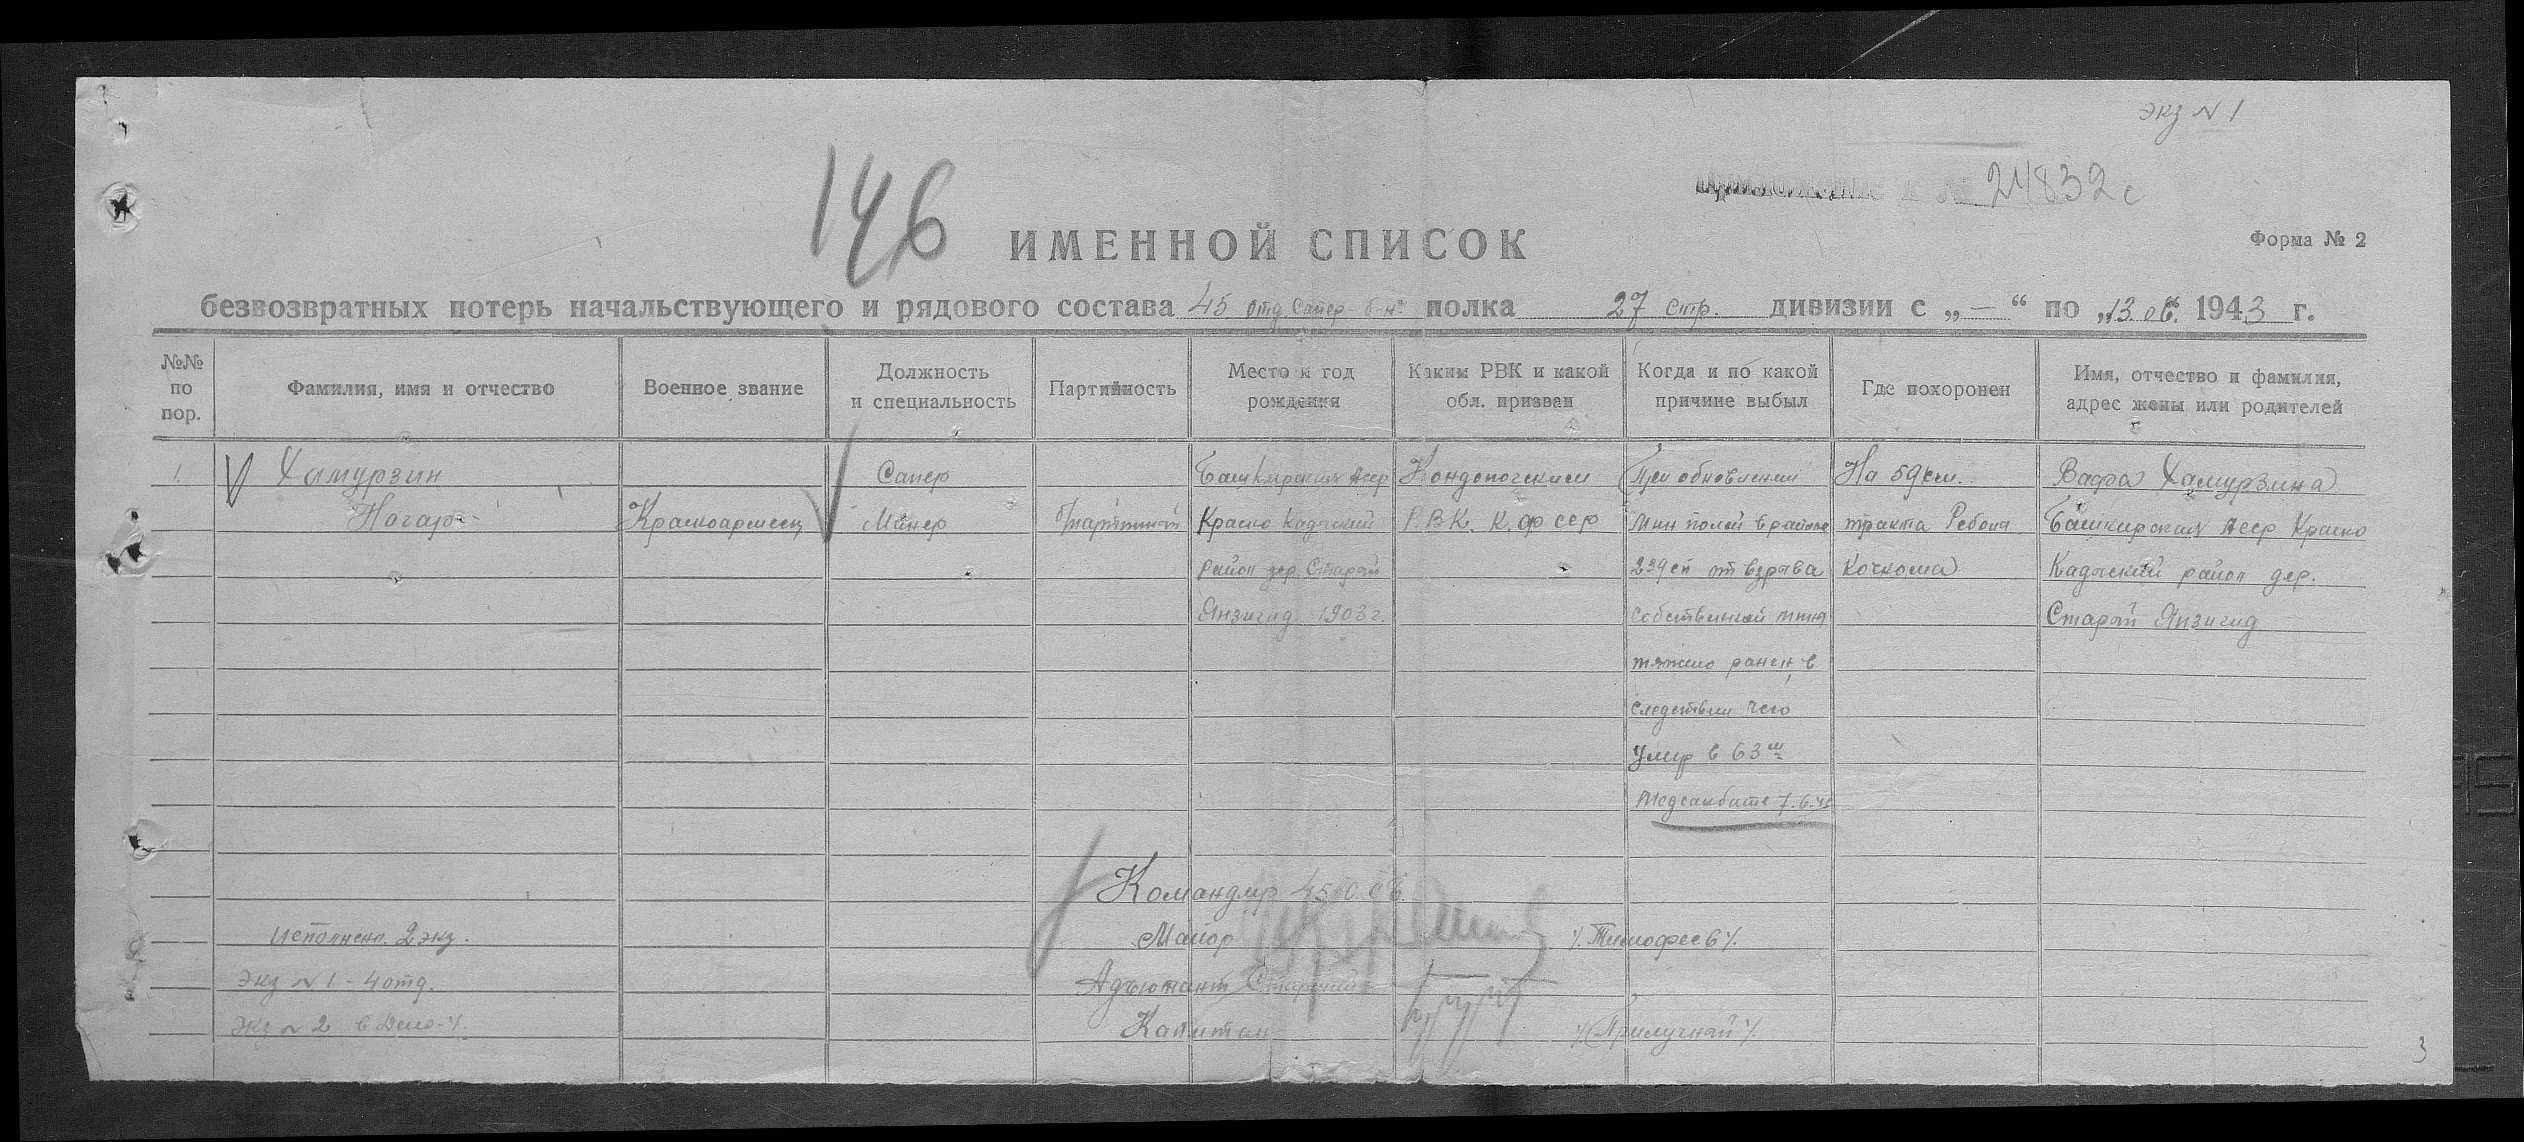 экз № 1
146
24832с
ИМЕННОЙ СПИСОК
Форма № 2
безвозвратных потерь начальствующего и рядового состава 45 отд сапер б-на полка 27 стр. дивизии с „—“ по „13.06. 1943 г.
№№ по пор.
Фамилия, имя и отчество
Военное звание
Должность и специальность
Партийность
Место и год рождения
Каким РВК и какой обл. призван
Когда и по какой причине выбыл
Где похоронен
Имя, отчество и фамилия, адрес жены или родителей
1. Хамурзин Сапер Башкирская Асср Кондопогским При обновлении На 59 км. Вафа Хамурзина
Ногар Красноармеец Минер б/партийный Красно Кадаский Р.В.К. К.ф ССР мин полей в районе тракта Ребола Башкирская Асср Красно
район дер. Старой 239 сп от взрыва Кочкома Кадаский район дер.
Янзигид 1903 г. собственной мины Старой Янзигид
тяжело ранен, в
следствии чего
умер в 63 м
Медсанбате 7.6.43
Командир 45 О.С.Б.
Исполнено. 2 экз. Майор /. Тимофеев /.
Экз № 1 - 4 отд. Адъютант Старший
Экз № 2 в Дело /. Капитан /Прилучный /.
3